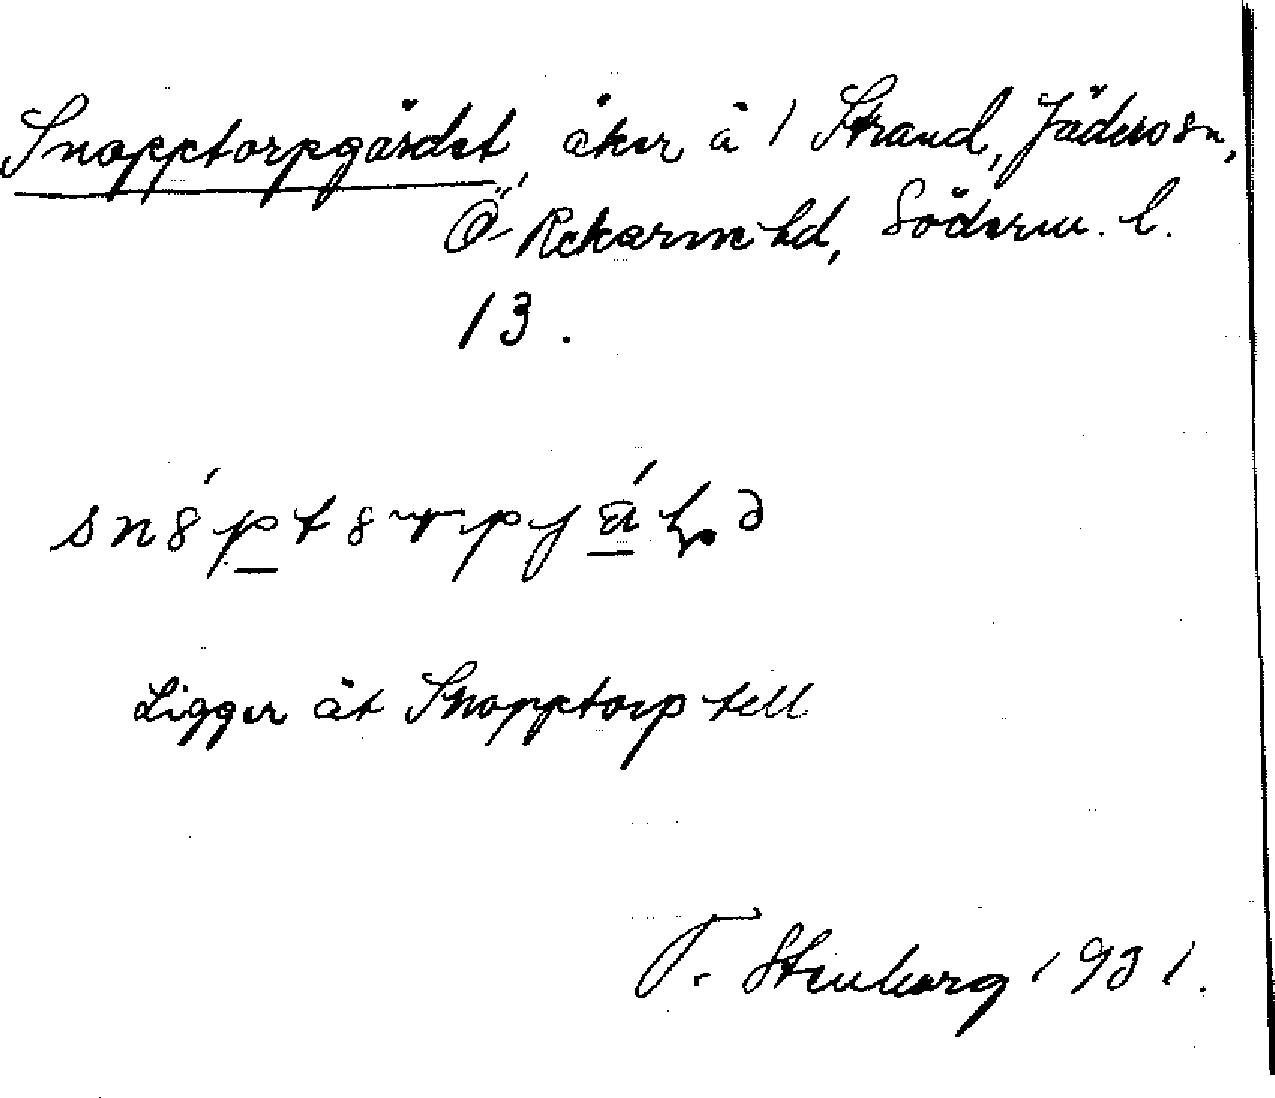 Snopptorpgärdet, åker å 1 Strand, Jäders sn,
Ö. Rekarne hd, Söderm. l.
13.
Ligger åt Snopptorp tell
T. Stenborg 1931.